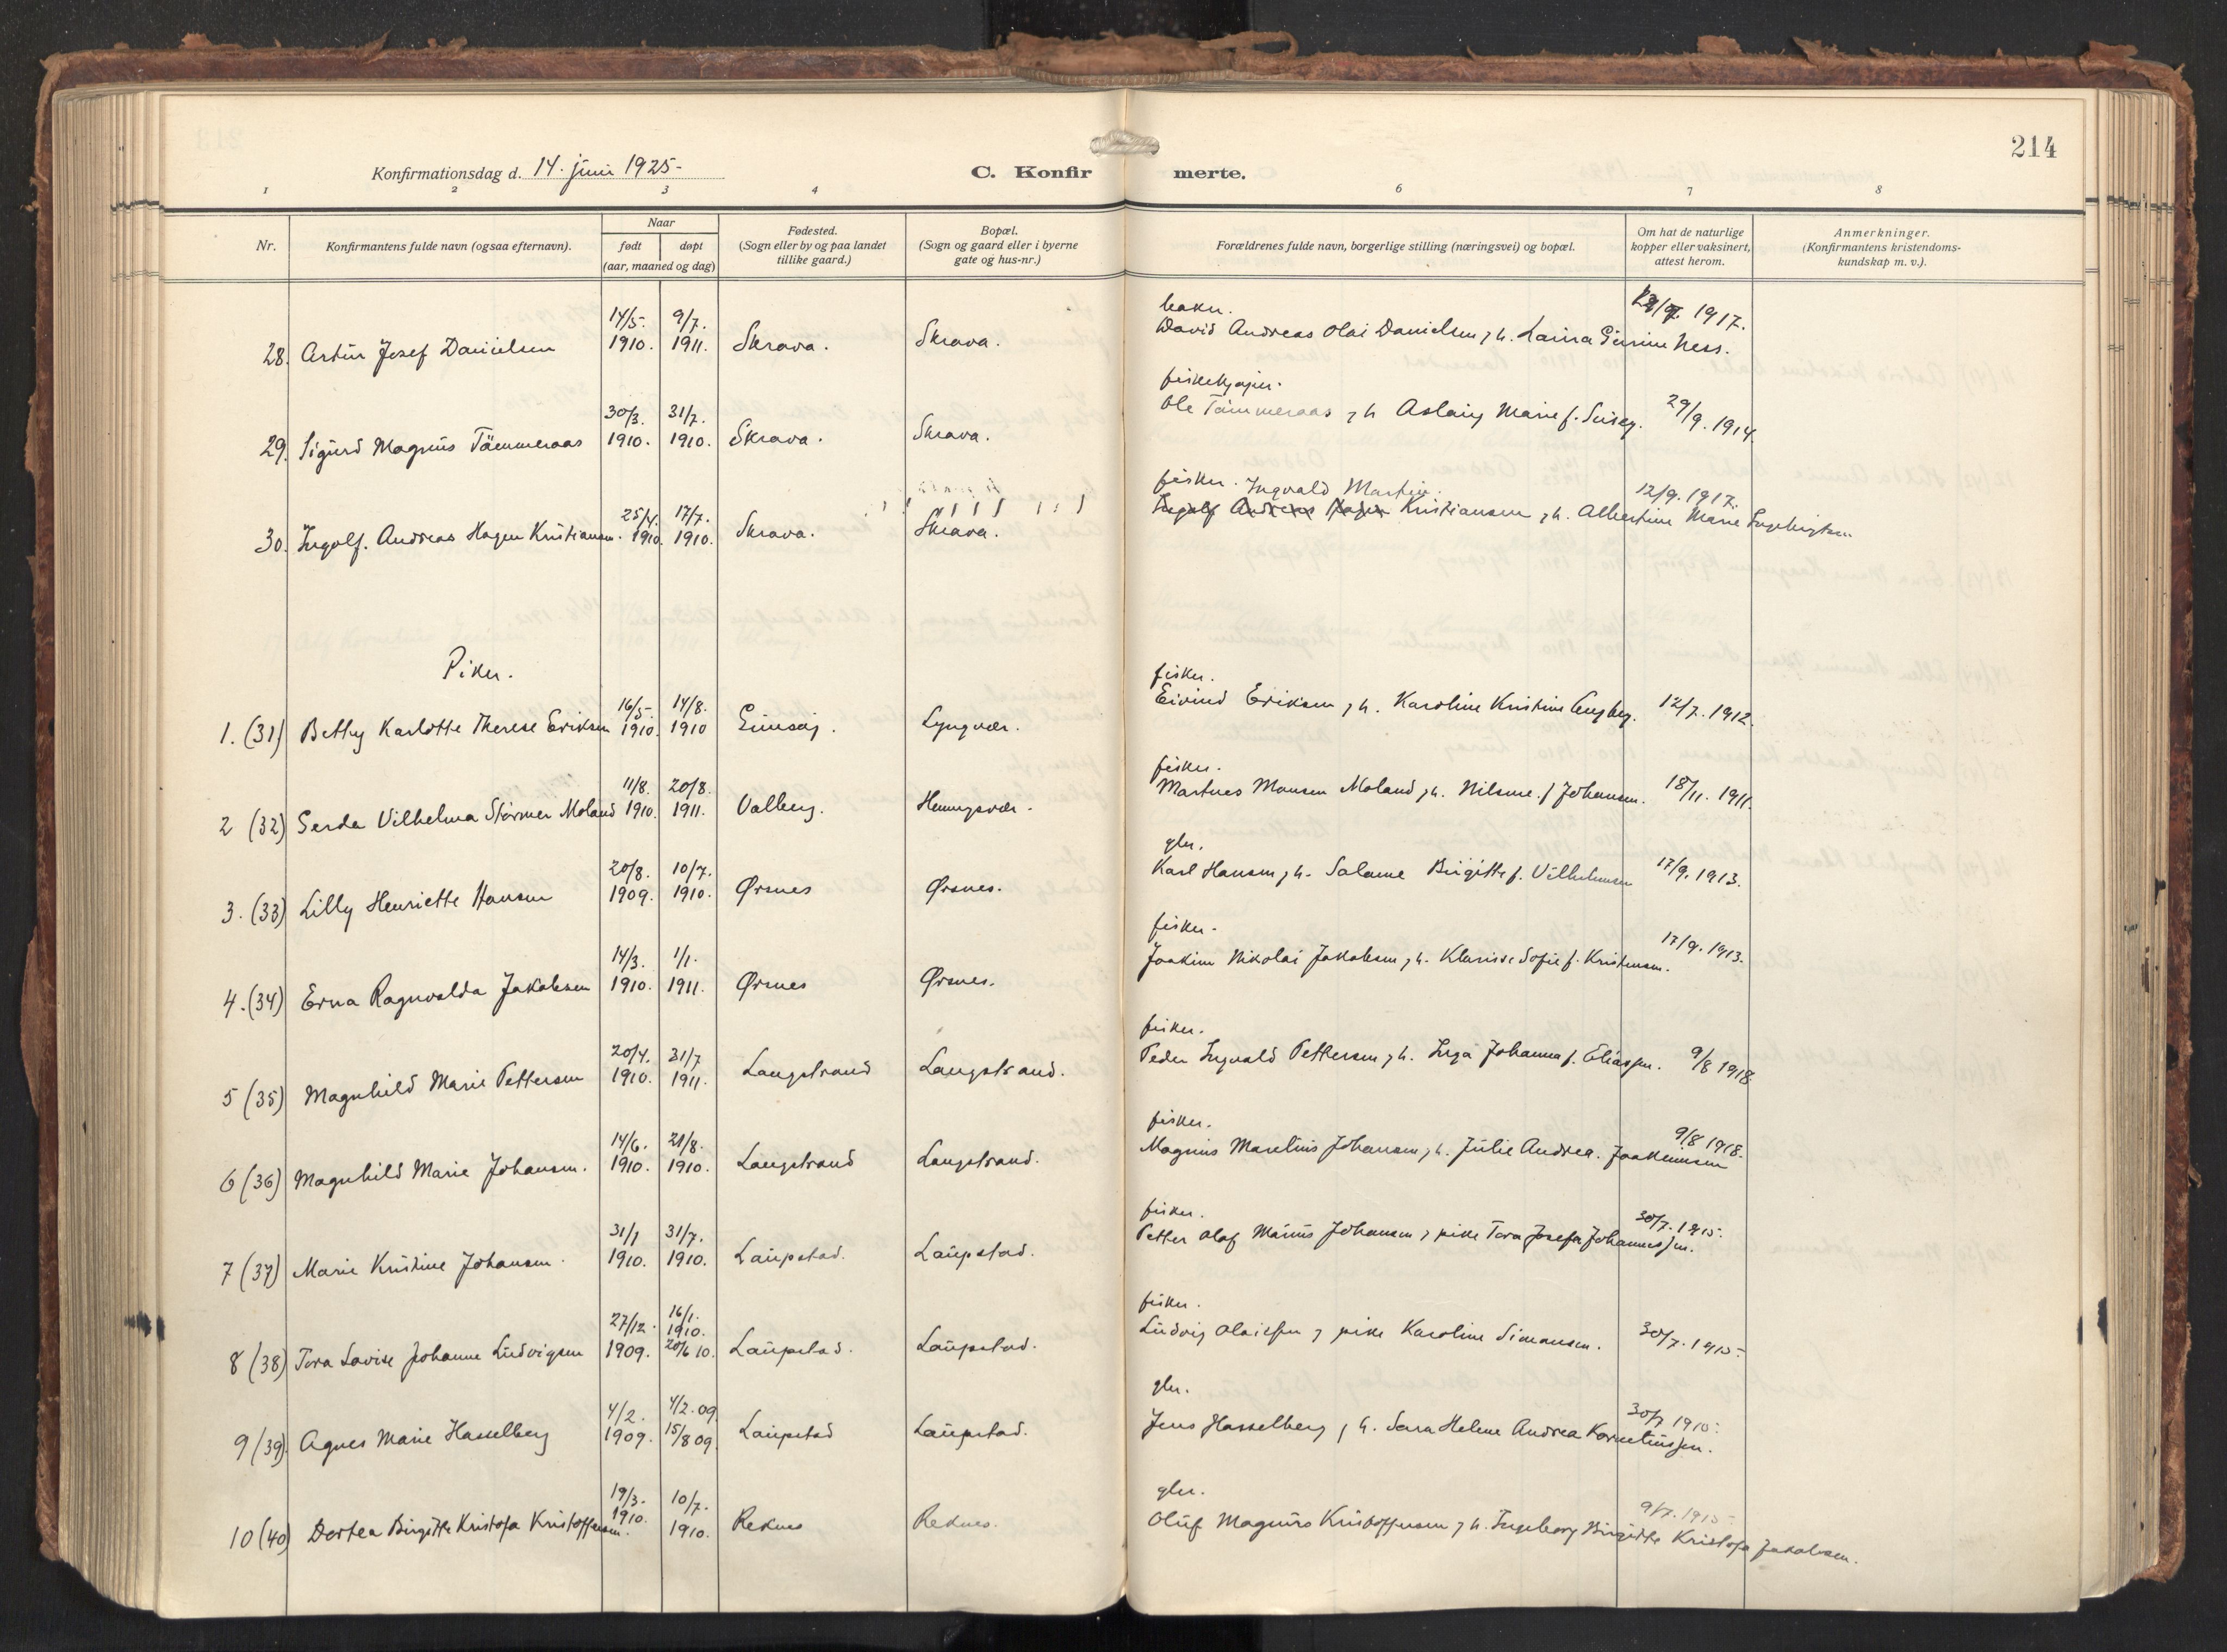 214
Konfirmationsdag d. 14. juni 1925-
C. Konfirmerte.
1 2 3 4 6 7 8
Nr.
Konfirmantens fulde navn (ogsaa efternavn).
Naar
født døpt
(aar, maaned og dag)
Fødested.
(Sogn eller by og paa landet
tillike gaard.)
Bopæl.
(Sogn og gaard eller i byerne
gate og hus-nr.)
Forældrenes fulde navn, borgerlige stilling (næringsvei) og bopæl.
Om hat de naturlige
kopper eller vaksinert,
attest herom.
Anmerkninger.
(Konfirmantens kristendoms-
kundskap m. v.).
14/5. 9/7. 1917.
28. Artur Josef Danielsen 1910. 1911. Skrava. Skrava. David Andreas Olai Danielsen, h. Laura Ness.
30/3. 31/7. fiskekjøper.
29. Sigurd Magnus Tämmeraas 1910. 1910. Skrava. Skrava. Ole Tämmeraas, h Aslaug Marie f. 29/9. 1914.
25/4. 17/7. fisker. Ingvald Martin 12/9. 1917.
30. Ingolf. Andreas Hagen Kristiansen. 1910. 1910. Skrava. Skrava. Ingolf Andreas Hagen Kristiansen, h. Albertine Marie Ingebrigtsen
Piker.
16/5. 14/8. fisker.
1. (31) Betty Karlotte Therese Eriksen 1910. 1910 Lyngvær. Eivind Eriksen, h. Karoline Kristine 12/7. 1912.
11/8. 20/8. fisker.
2 (32) Gerda Vilhelma Størmer Moland 1910. 1911. Valberg. Henningsvær. Martines Monsen Moland, h. f Johansen. 18/11. 1911.
20/8. 10/7. gbr.
3. (33) Lilly Henriette Hansen 1909. 1910. Ørsnes Ørsnes. Karl Hansen, h. Salame Birgitte f. Vilhelmsen 17/9. 1913.
14/3. 1/1. fisker.
4. (34) Erna Ragnvalda Jakobsen 1910. 1911. Ørsnes Ørsnes. Joakim Nikolai Jakobsen, h. Klarise Sofie f. Kristensen. 17/9. 1913.
20/4. 31/7 fisker.
5 (35) Magnhild Marie Pettersen 1910. 1911. Langstrand Langstrand. Peder Ingvald Pettersen, h. Inga Johanna f. Eliassen. 9/8 1918.
14/6. 21/8. fisker.
6 (36) Magnhild Marie Johansen. 1910. 1910. Langstrand Langstrand. Magnus Marelius Johansen, h. Julie Andrea. Joakimsen 9/8 1918.
31/1 31/7. fisker.
7 (37) Marie Kristine Johansen. 1910. 1910. Laupstad. Laupstad. Petter Olaf Johansen, pike Tora Josefa Johannessen. 30/7. 1915.
27/12. 16/1. 1910. fisker.
8 (38) Tora Lovise Johanne Ludvigsen 1909. 20/6 10. Laupstad. Laupstad. Ludvig Olaissen, pike Karoline Simonsen. 30/7. 1915.
4/2. 4/2. 09 gbr.
9 (39) Agnes Marie Hasselberg 1909. 15/8 09. Laupstad Laupstad. Jens Hasselberg, h. Sara Helene Andrea Korneliussen. 30/7 1915.
19/3. 10/7. gbr.
10 (40) Dortea Birgitte Kristofa Kristoffersen. 1910. 1910. Reknes Reknes. Oluf Magnus Kristoffersen, h. Ingeborg Birgitte Kristofa Jakobsen. 9/7. 1915.